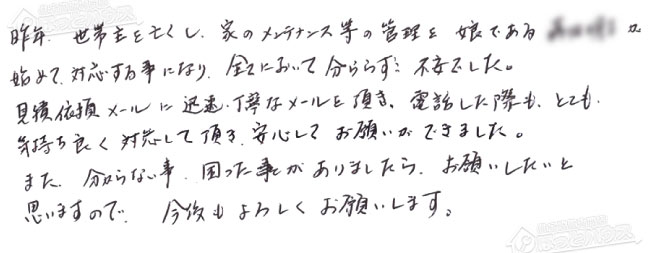 昨年、世帯主を亡くし、家のメンテナンス等の管理を娘である が
始めて対応する事になり、全てにおいて分らず、不安でした。
見積依頼メールに迅速・丁寧なメールを頂き、電話した際も、とても、
気持ち良く対応して頂き、安心してお願いができました。
また、分からない事、困った事がありましたら、お願いしたいと
思いますので、今後もよろしくお願いします。